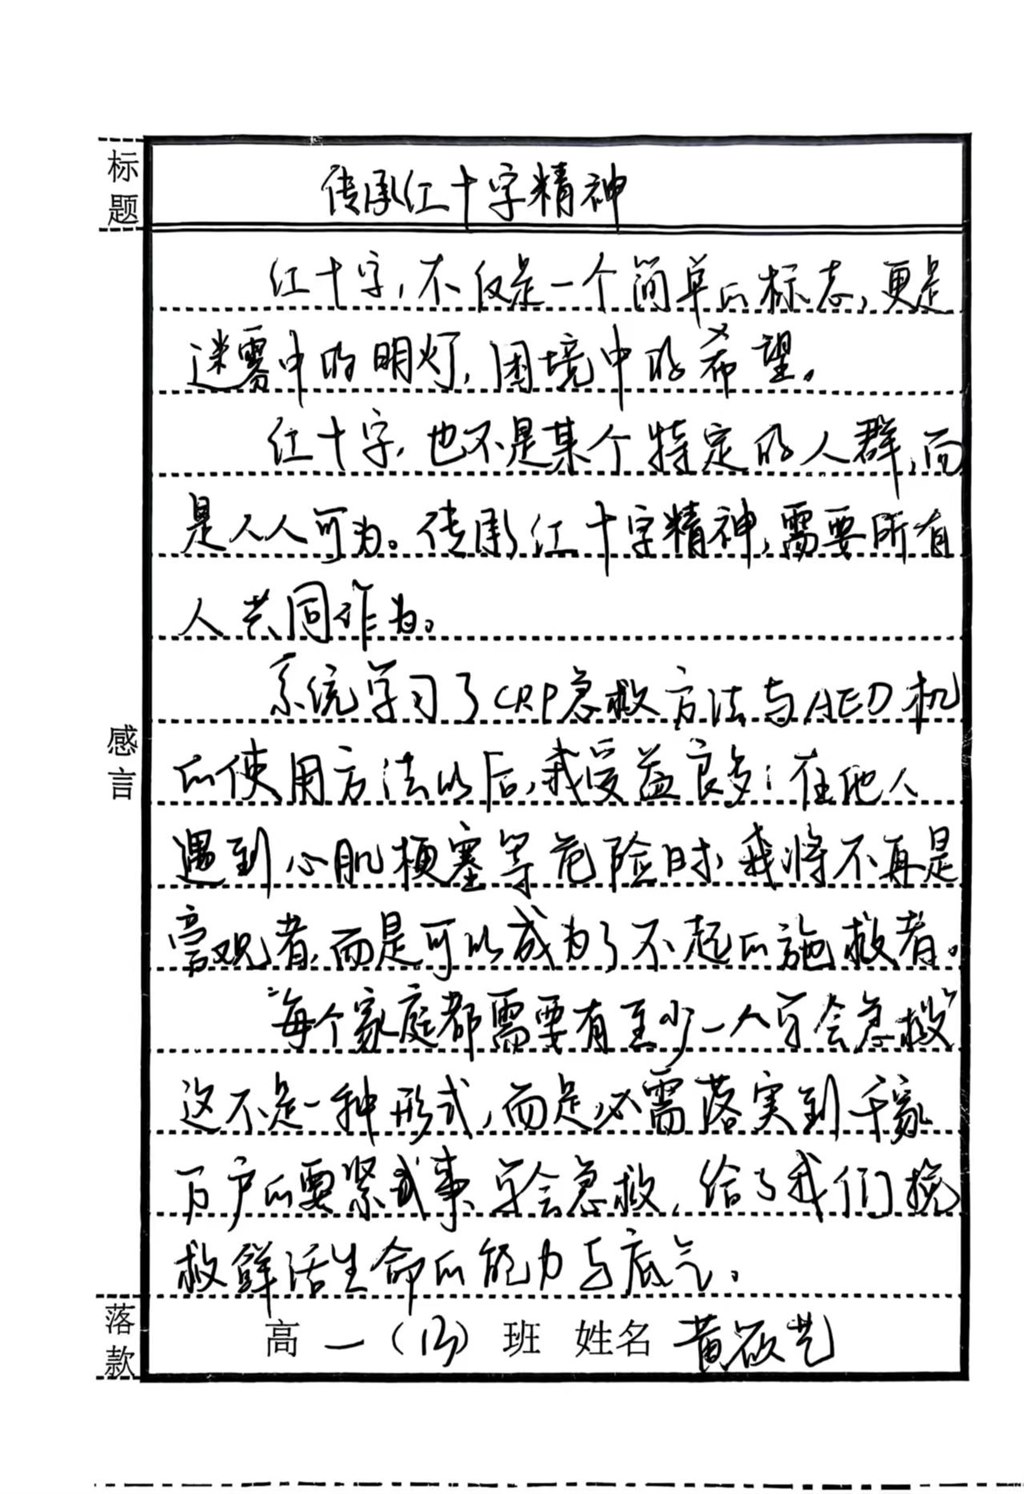 标题
传承红十字精神
红十字,不仅是一个简单的标志,更是
迷雾中的明灯,困境中的希望。
红十字,也不是某个特定的人群,而
是人人可为。传承红十字精神,需要所有
人共同作为。
系统学习了CRP急救方法与AED机
的使用方法以后,我受益良多:在他人
遇到心肌梗塞等危险时,我将不再是
旁观者,而是可以成为了不起的施救者。
感言
“每个家庭都需要有至少一人学会急救”
这不是一种形式,而是必需落实到千家
万户的要紧事,学会急救,给了我们挽
救鲜活生命的能力与底气。
落款
高一(13)班 姓名 黄